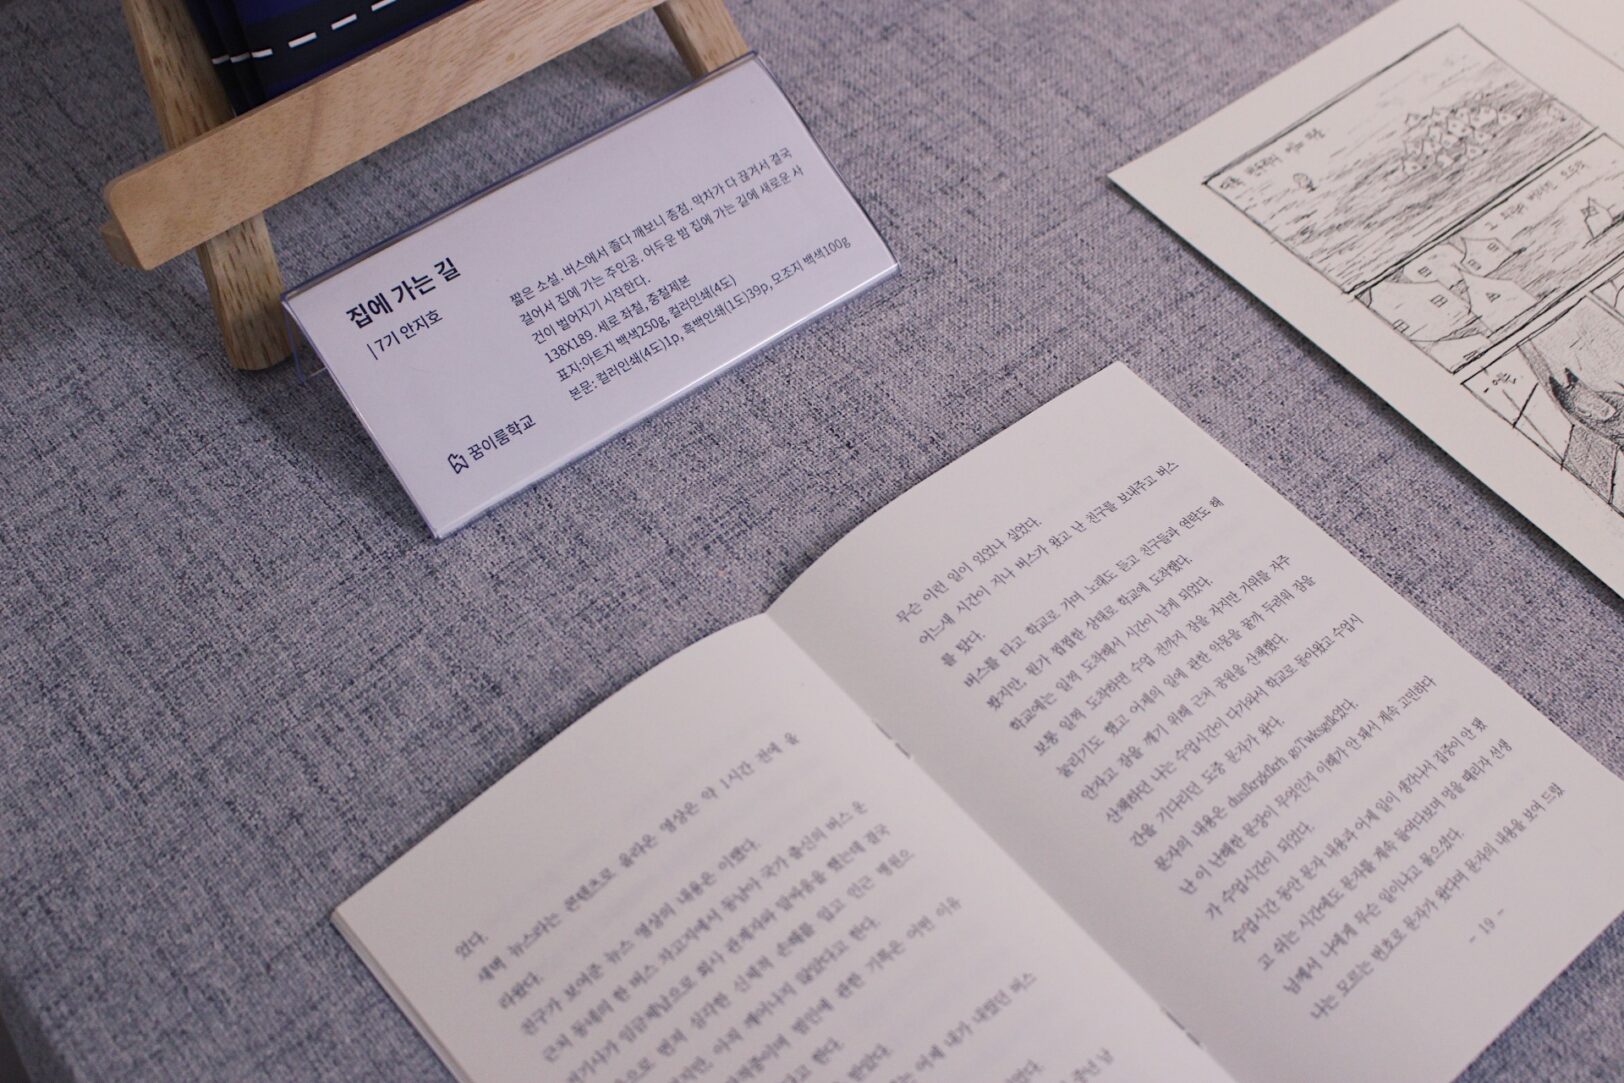 집에 가는 길
| 7기 안지호
짧은 소설. 버스에서 졸다 깨보니 종점. 막차가 다 끊겨서 결국
걸어서 집에 가는 주인공. 어두운 밤 집에 가는 길에 새로운 사
건이 벌어지기 시작한다.
138X189. 세로 좌철, 중철제본
표지:아트지 백색250g, 컬러인쇄(4도)
본문: 컬러인쇄(4도)1p, 흑백인쇄(1도)39p, 모조지 백색100g
꿈이룸학교
었다.
새벽 뉴스라는 콘텐츠로 올라온 영상은 약 1시간 전에 올
라왔다.
친구가 보여준 뉴스 영상의 내용은 이랬다.
근처 동네의 한 버스 차고지에서 동남아 국가 출신의 버스 운
임금체납으로 회사 관계자와 말싸움을 했는데 결국
심각한 신체적 손해를 입고 인근 병원으
이의 깨어나지 않았다고 한다.
범인에 관한 기록은 어떤 이유
고 한다.
어제 내가 내렸던 버스
무슨 이런 일이 있었나 싶었다.
어느새 시간이 지나 버스가 왔고 난 친구를 보내주고 버스
를 탔다.
버스를 타고 학교로 가며 노래도 듣고 친구들과 연락도 해
봤지만, 뭔가 찜찜한 상태로 학교에 도착했다.
학교에는 일찍 도착해서 시간이 남게 되었다.
보통 일찍 도착하면 수업 전까지 잠을 자지만 가위를 자주
눌리기도 했고 어제의 일에 관한 악몽을 꿀까 두려워 잠을
안자고 잠을 깨기 위해 근처 공원을 산책했다.
산책하던 나는 수업시간이 다가와서 학교로 돌아왔고 수업시
간을 기다리던 도중 문자가 왔다.
문자의 내용은 었다.
난 이 난해한 문장이 무엇인지 이해가 안 돼서 계속 고민하다
가 수업시간이 되었다.
수업시간 동안 문자 내용과 어제 일이 생각나서 집중이 안 됐
고 쉬는 시간에도 문자를 계속 들여다보며 멍을 때리자 선생
님께서 나에게 무슨 일이냐고 물으셨다.
나는 모르는 번호로 문자가 왔다며 문자의 내용을 보여 드렸
- 19 -